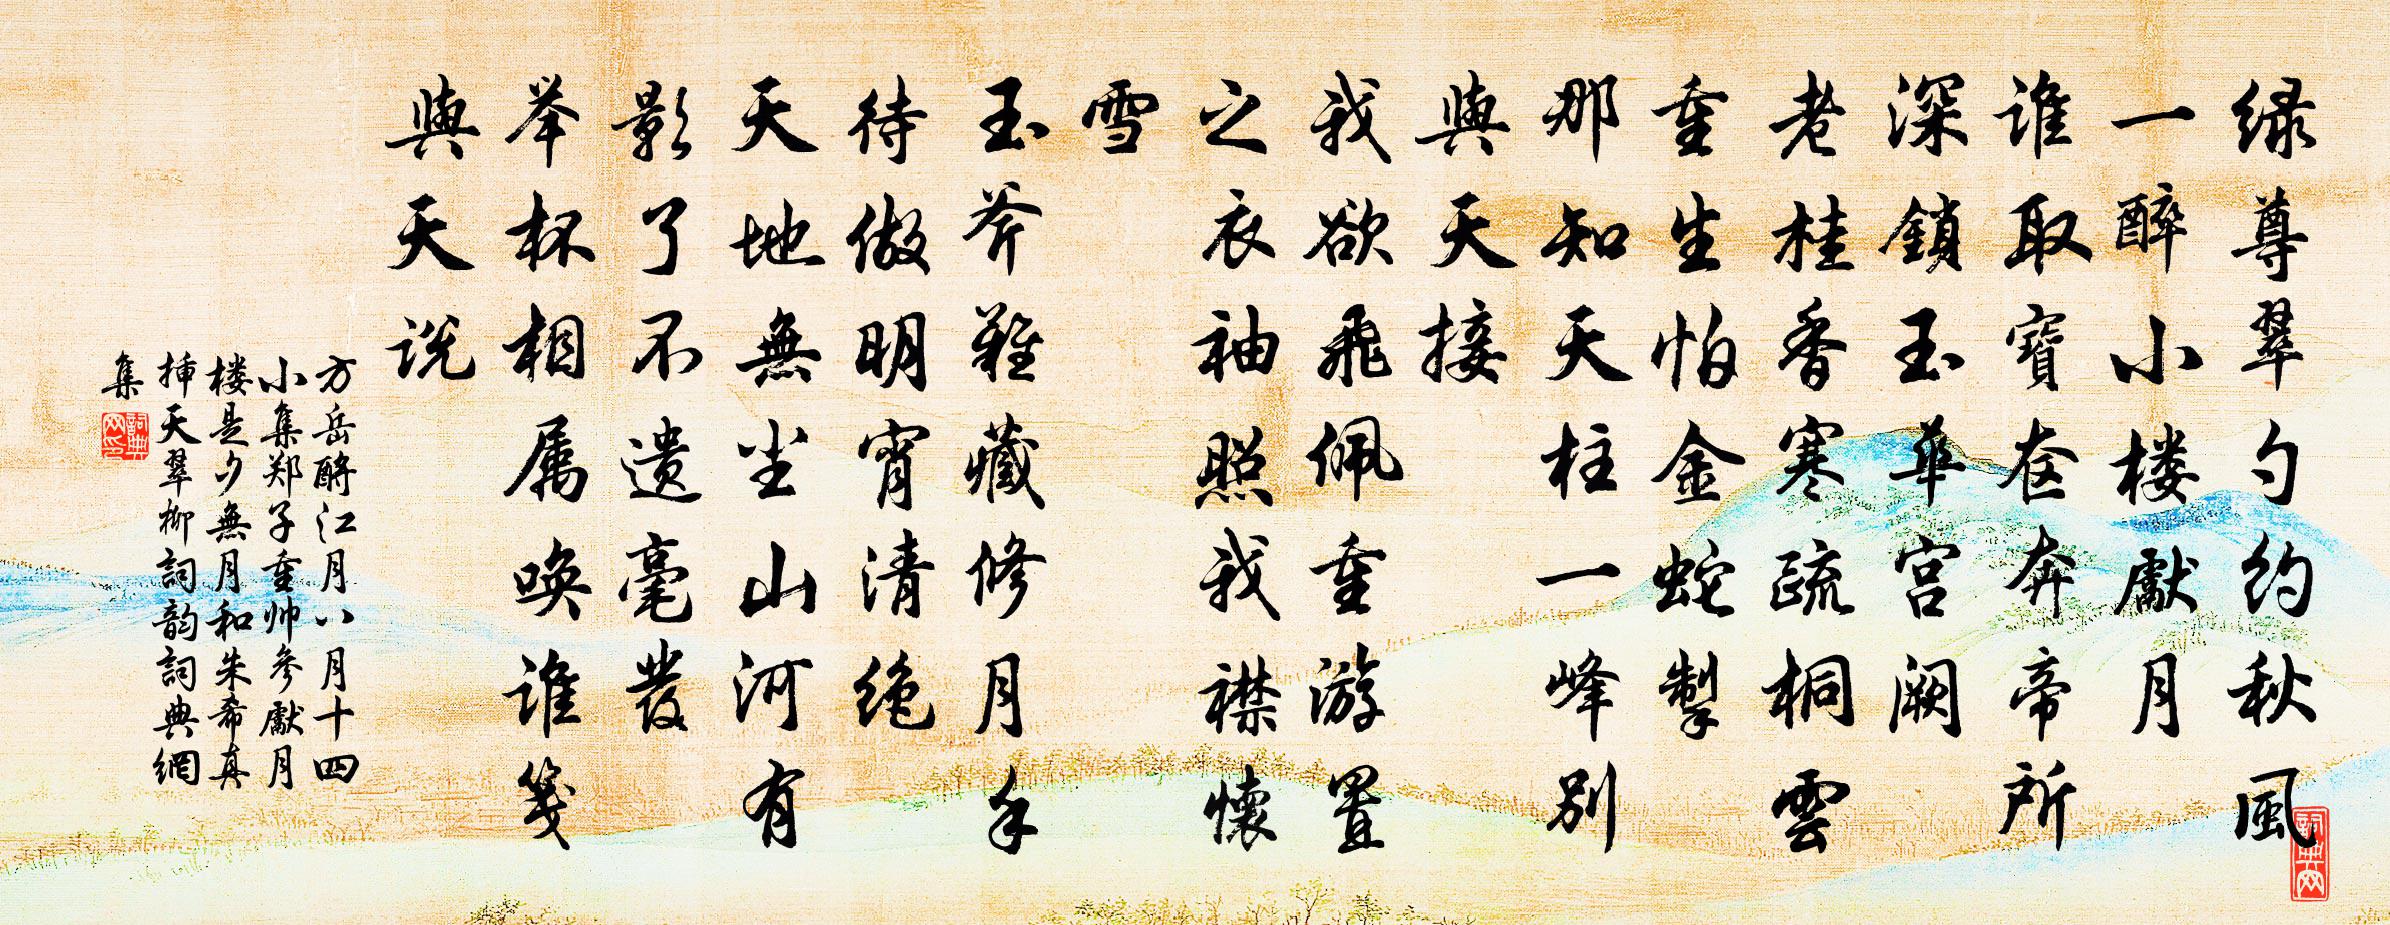 绿尊翠勺约秋風
一醉小楼獻月
谁取寶奁奔帝所
深鎖玉華宫阙
老桂香寒疏桐雲
重生怕金蛇掣
那知天柱一峰别
與天接
我欲飛佩重游置
之衣袖照我襟懷
雪
玉斧難藏修月手
待做明宵清绝
天地無尘山河有
影了不遗毫發
举杯相属唤谁笺
與天说
方岳酹江月八月十四
小集郑子重帅参獻月
楼是夕無月和朱希真
插天翠柳詞韵詞典網
集
詞典网
詞典网印